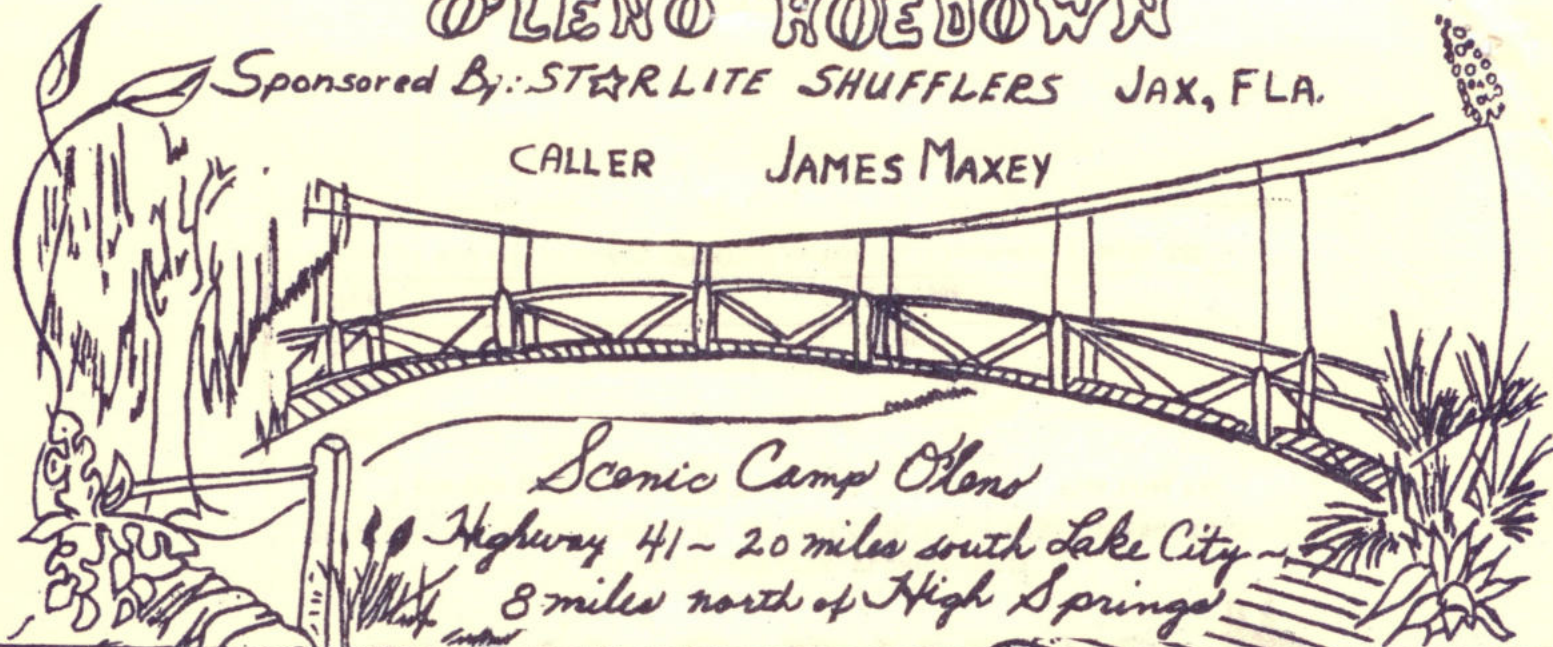 O'LENO HOEDOWN
Sponsored By: ST☆RLITE SHUFFLERS JAX, FLA.
CALLER JAMES MAXEY
Scenic Camp O'leno
Highway 41 ~ 20 miles south Lake City ~
8 miles north of High Springs